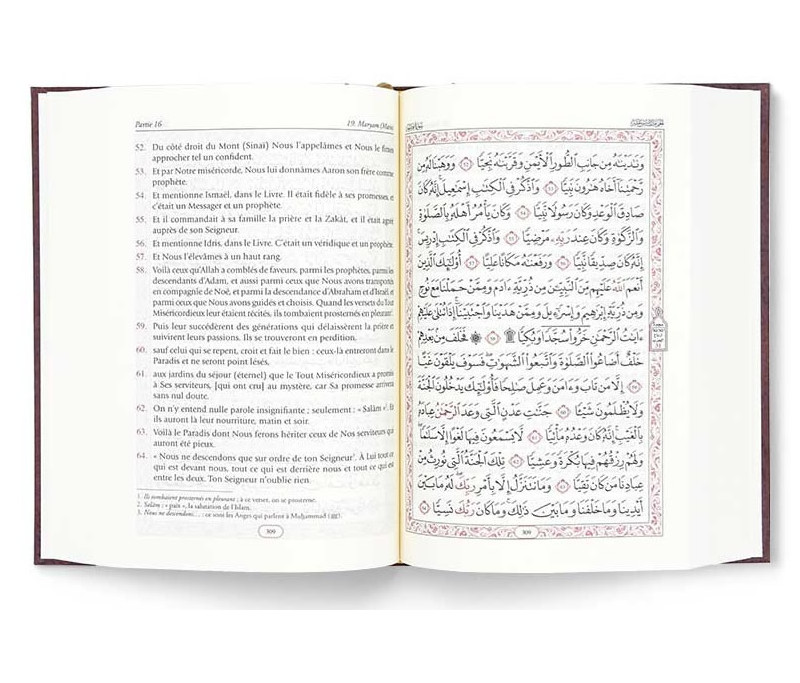 Partie 16
19. Maryam (Marie)
52. Du côté droit du Mont (Sinaï) Nous l'appelâmes et Nous le fîmes
approcher tel un confident.
53. Et par Notre miséricorde, Nous lui donnâmes Aaron son frère comme
prophète.
54. Et mentionne Ismaël, dans le Livre. Il était fidèle à ses promesses, et
c'était un Messager et un prophète.
55. Et il commandait à sa famille la prière et la Zakât, et il était agréé
auprès de son Seigneur.
56. Et mentionne Idris, dans le Livre. C'était un véridique et un prophète.
57. Et Nous l'élevâmes à un haut rang.
58. Voilà ceux qu'Allah a comblés de faveurs, parmi les prophètes, parmi les
descendants d'Adam, et aussi parmi ceux que Nous avons transportés
en compagnie de Noé, et parmi la descendance d'Abraham et d'Israël, et
parmi ceux que Nous avons guidés et choisis. Quand les versets du Tout
Miséricordieux leur étaient récités, ils tombaient prosternés en pleurant¹.
59. Puis leur succédèrent des générations qui délaissèrent la prière et
suivirent leurs passions. Ils se trouveront en perdition,
60. sauf celui qui se repent, croit et fait le bien : ceux-là entreront dans le
Paradis et ne seront point lésés,
61. aux jardins du séjour (éternel) que le Tout Miséricordieux a promis
à Ses serviteurs, [qui ont cru] au mystère, car Sa promesse arrivera
sans nul doute.
62. On n'y entend nulle parole insignifiante ; seulement : « Salâm »². Et
ils auront là leur nourriture, matin et soir.
63. Voilà le Paradis dont Nous ferons hériter ceux de Nos serviteurs qui
auront été pieux.
64. « Nous ne descendons que sur ordre de ton Seigneur³. À Lui tout ce
qui est devant nous, tout ce qui est derrière nous et tout ce qui est
entre les deux. Ton Seigneur n'oublie rien.
1. Ils tombaient prosternés en pleurant : à ce verset, on se prosterne.
2. Salâm : « paix », la salutation de l'Islam.
3. Nous ne descendons... : ce sont les Anges qui parlent à Muḥammad (ﷺ).
309
وَنَٰدَيْنَٰهُ مِن جَانِبِ ٱلطُّورِ ٱلْأَيْمَنِ وَقَرَّبْنَٰهُ نَجِيًّا ٥٢ وَوَهَبْنَا لَهُۥ مِن
رَّحْمَتِنَآ أَخَاهُ هَٰرُونَ نَبِيًّا ٥٣ وَٱذْكُرْ فِى ٱلْكِتَٰبِ إِسْمَٰعِيلَ إِنَّهُۥ كَانَ
صَادِقَ ٱلْوَعْدِ وَكَانَ رَسُولًا نَّبِيًّا ٥٤ وَكَانَ يَأْمُرُ أَهْلَهُۥ بِٱلصَّلَوٰةِ
وَٱلزَّكَوٰةِ وَكَانَ عِندَ رَبِّهِۦ مَرْضِيًّا ٥٥ وَٱذْكُرْ فِى ٱلْكِتَٰبِ إِدْرِيسَ
إِنَّهُۥ كَانَ صِدِّيقًا نَّبِيًّا ٥٦ وَرَفَعْنَٰهُ مَكَانًا عَلِيًّا ٥٧ أُو۟لَٰٓئِكَ ٱلَّذِينَ
أَنْعَمَ ٱللَّهُ عَلَيْهِم مِّنَ ٱلنَّبِيِّـۧنَ مِن ذُرِّيَّةِ ءَادَمَ وَمِمَّنْ حَمَلْنَا مَعَ نُوحٍ
وَمِن ذُرِّيَّةِ إِبْرَٰهِيمَ وَإِسْرَٰٓءِيلَ وَمِمَّنْ هَدَيْنَا وَٱجْتَبَيْنَآ إِذَا تُتْلَىٰ عَلَيْهِمْ
ءَايَٰتُ ٱلرَّحْمَٰنِ خَرُّوا۟ سُجَّدًا وَبُكِيًّا ۩ ٥٨ ۞ فَخَلَفَ مِنۢ بَعْدِهِمْ
خَلْفٌ أَضَاعُوا۟ ٱلصَّلَوٰةَ وَٱتَّبَعُوا۟ ٱلشَّهَوَٰتِ فَسَوْفَ يَلْقَوْنَ غَيًّا
٥٩ إِلَّا مَن تَابَ وَءَامَنَ وَعَمِلَ صَٰلِحًا فَأُو۟لَٰٓئِكَ يَدْخُلُونَ ٱلْجَنَّةَ
وَلَا يُظْلَمُونَ شَيْـًٔا ٦٠ جَنَّٰتِ عَدْنٍ ٱلَّتِى وَعَدَ ٱلرَّحْمَٰنُ عِبَادَهُۥ
بِٱلْغَيْبِ إِنَّهُۥ كَانَ وَعْدُهُۥ مَأْتِيًّا ٦١ لَّا يَسْمَعُونَ فِيهَا لَغْوًا إِلَّا سَلَٰمًا
وَلَهُمْ رِزْقُهُمْ فِيهَا بُكْرَةً وَعَشِيًّا ٦٢ تِلْكَ ٱلْجَنَّةُ ٱلَّتِى نُورِثُ مِنْ
عِبَادِنَا مَن كَانَ تَقِيًّا ٦٣ وَمَا نَتَنَزَّلُ إِلَّا بِأَمْرِ رَبِّكَ لَهُۥ مَا بَيْنَ
أَيْدِينَا وَمَا خَلْفَنَا وَمَا بَيْنَ ذَٰلِكَ وَمَا كَانَ رَبُّكَ نَسِيًّا ٦٤
309